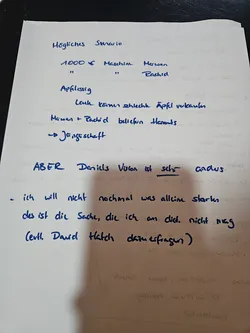 Mögliches Szenario
1.000 € Maschine Marwan
" " Rachid
Apfelessig
Leute können schlechte Äpfel verkaufen
Marwan + Rachid beliefern
→
ABER Daniels Vision ist sehr anders
- ich will nicht nochmal was alleine starten
das ist die Sache, die ich an dich nicht mag
(evtl David Hatch dazu fragen)